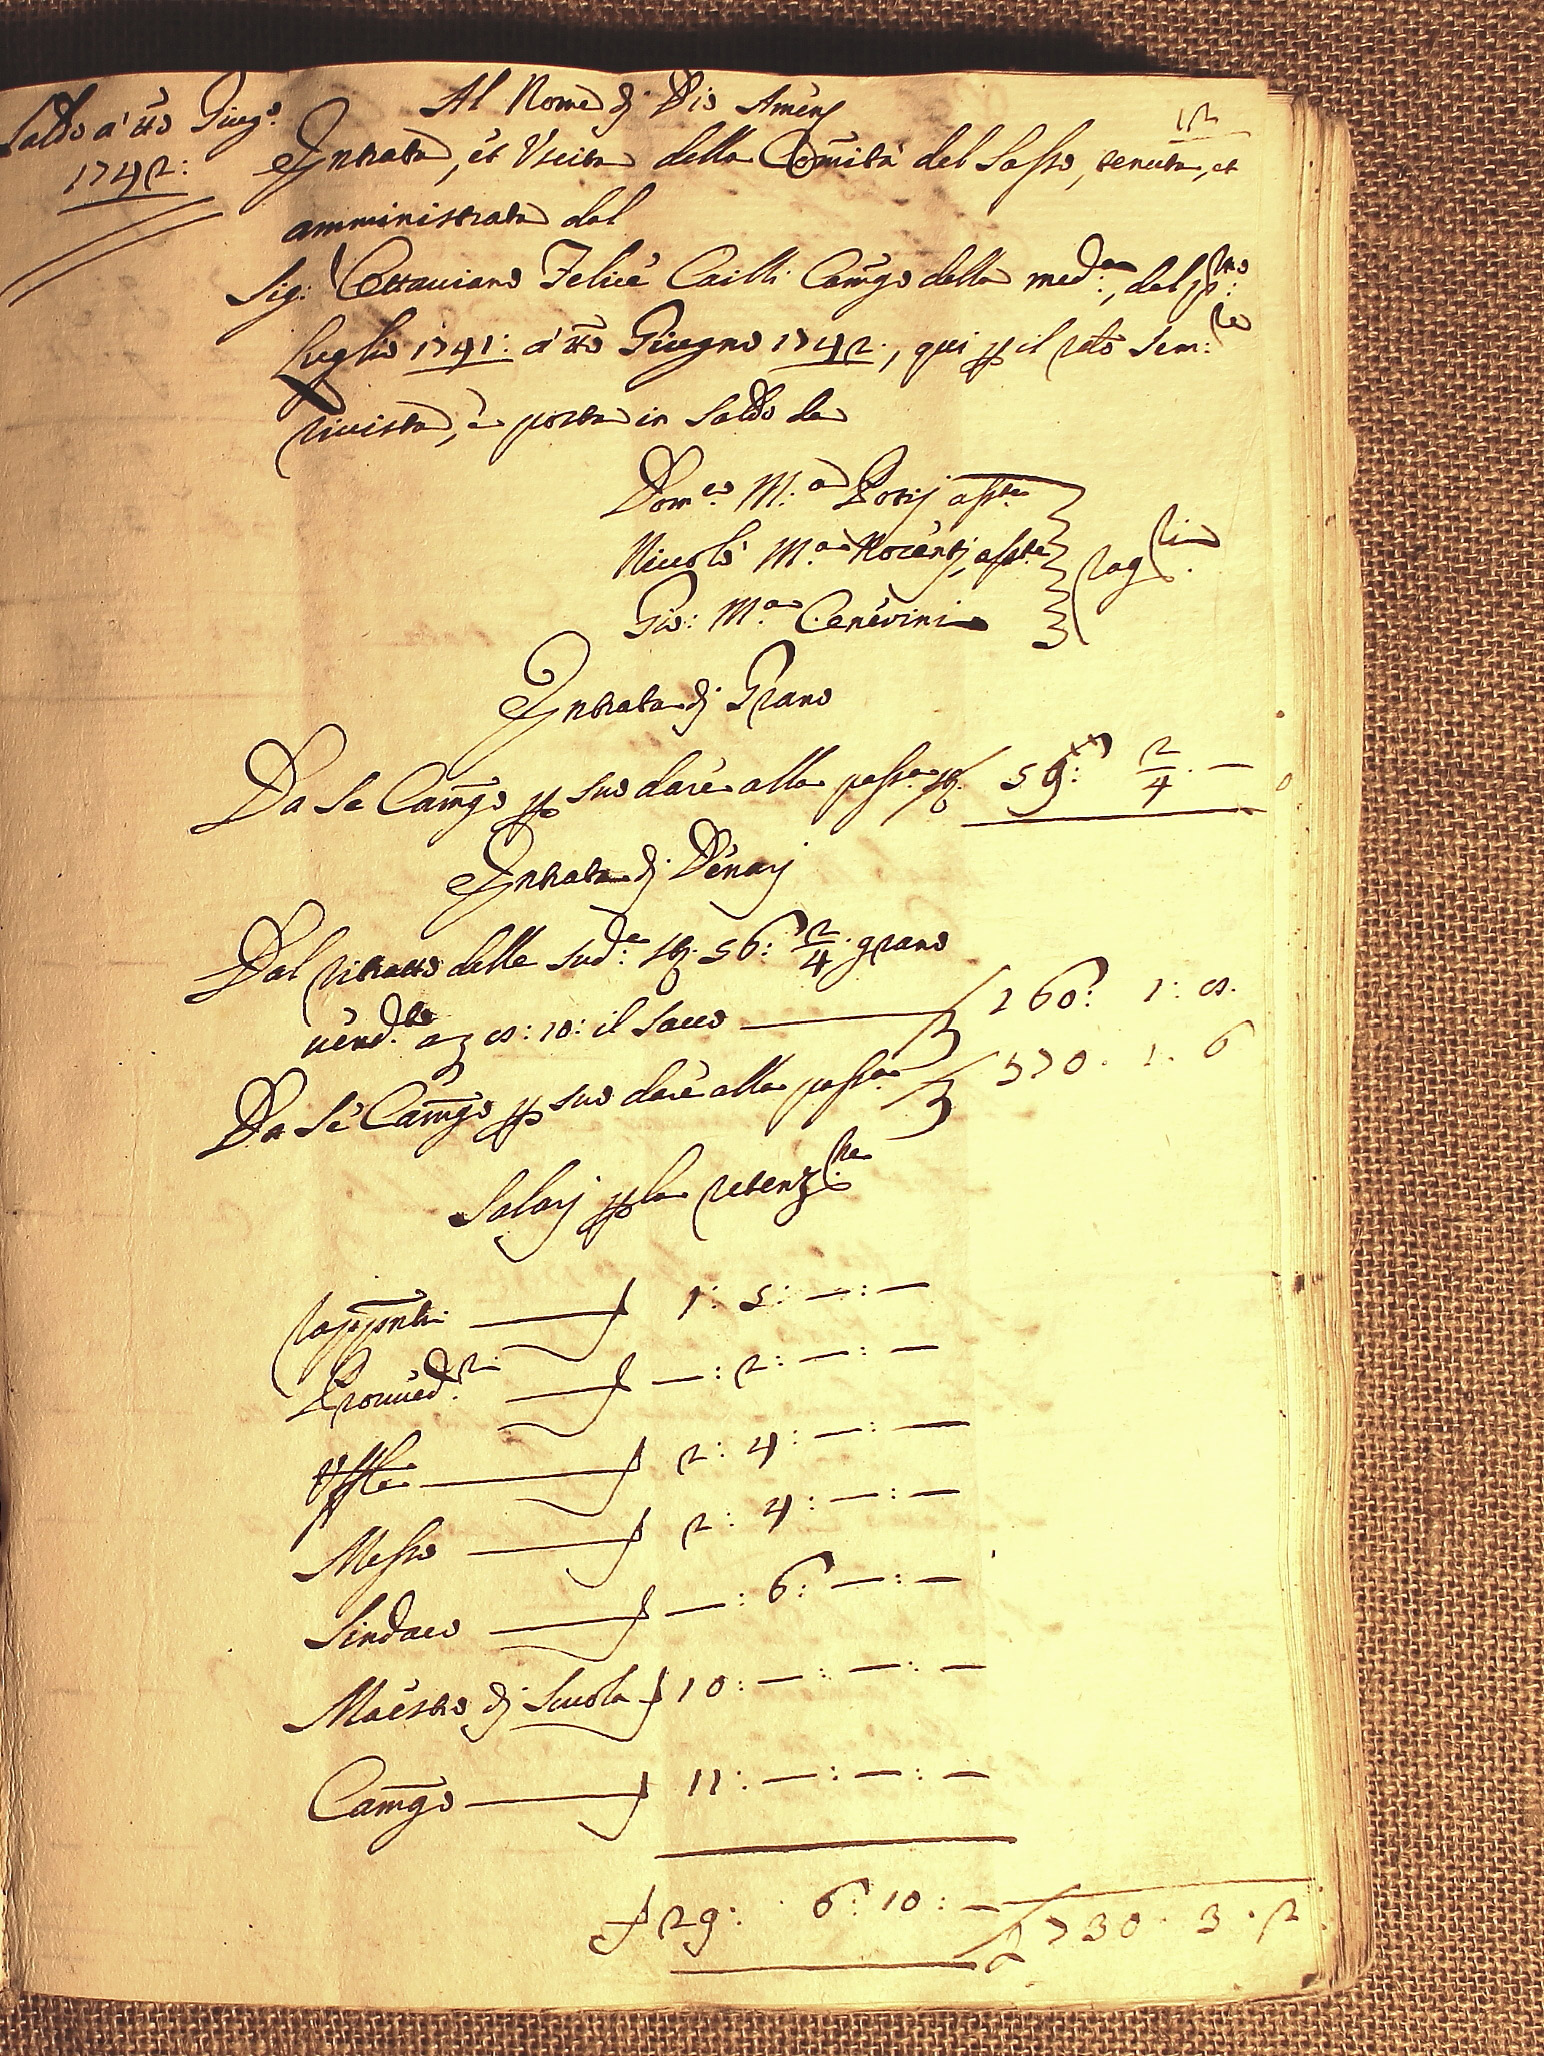 Saldo a' tto Giug.o
1742:
Al Nome di Dio Amen
12
Entrata, et Uscita della Comità del Sasso, tenuta, et
amministrata dal
Sig: Ottaviano Felice Cailli Camgo della med:a, dal p:mo
Luglio 1741: a' tto Giugno 1742:, qui p il sem:re
rivista, è posta in Saldo da
Dom:co M:a
Niccolò M:a Nocenti
Gio: M:a Cenerini
rag:ri
Entrata di Grano
Da Se Camgo p suo dare alla passa 59: 2/4 . —
Entrata di Denari
Dal ritratto delle sud:e 56: 2/4 grano
vend:to a il sacco — 160: 1:
Da Se Camgo p suo dare alla passa 570 . 1 . 6
Salarj p la retenz:ne
Rapprnti — 1: 5: —: —
Provved:re — —: 2: —: —
Uffle — 2: 4: —: —
Messo — 2: 4: —: —
Sindaco — —: 6: —: —
Maestro di Scuola 10: —: —: —
Camgo — 11: —: —: —
29: 6: 10: — 730 . 3 . 2